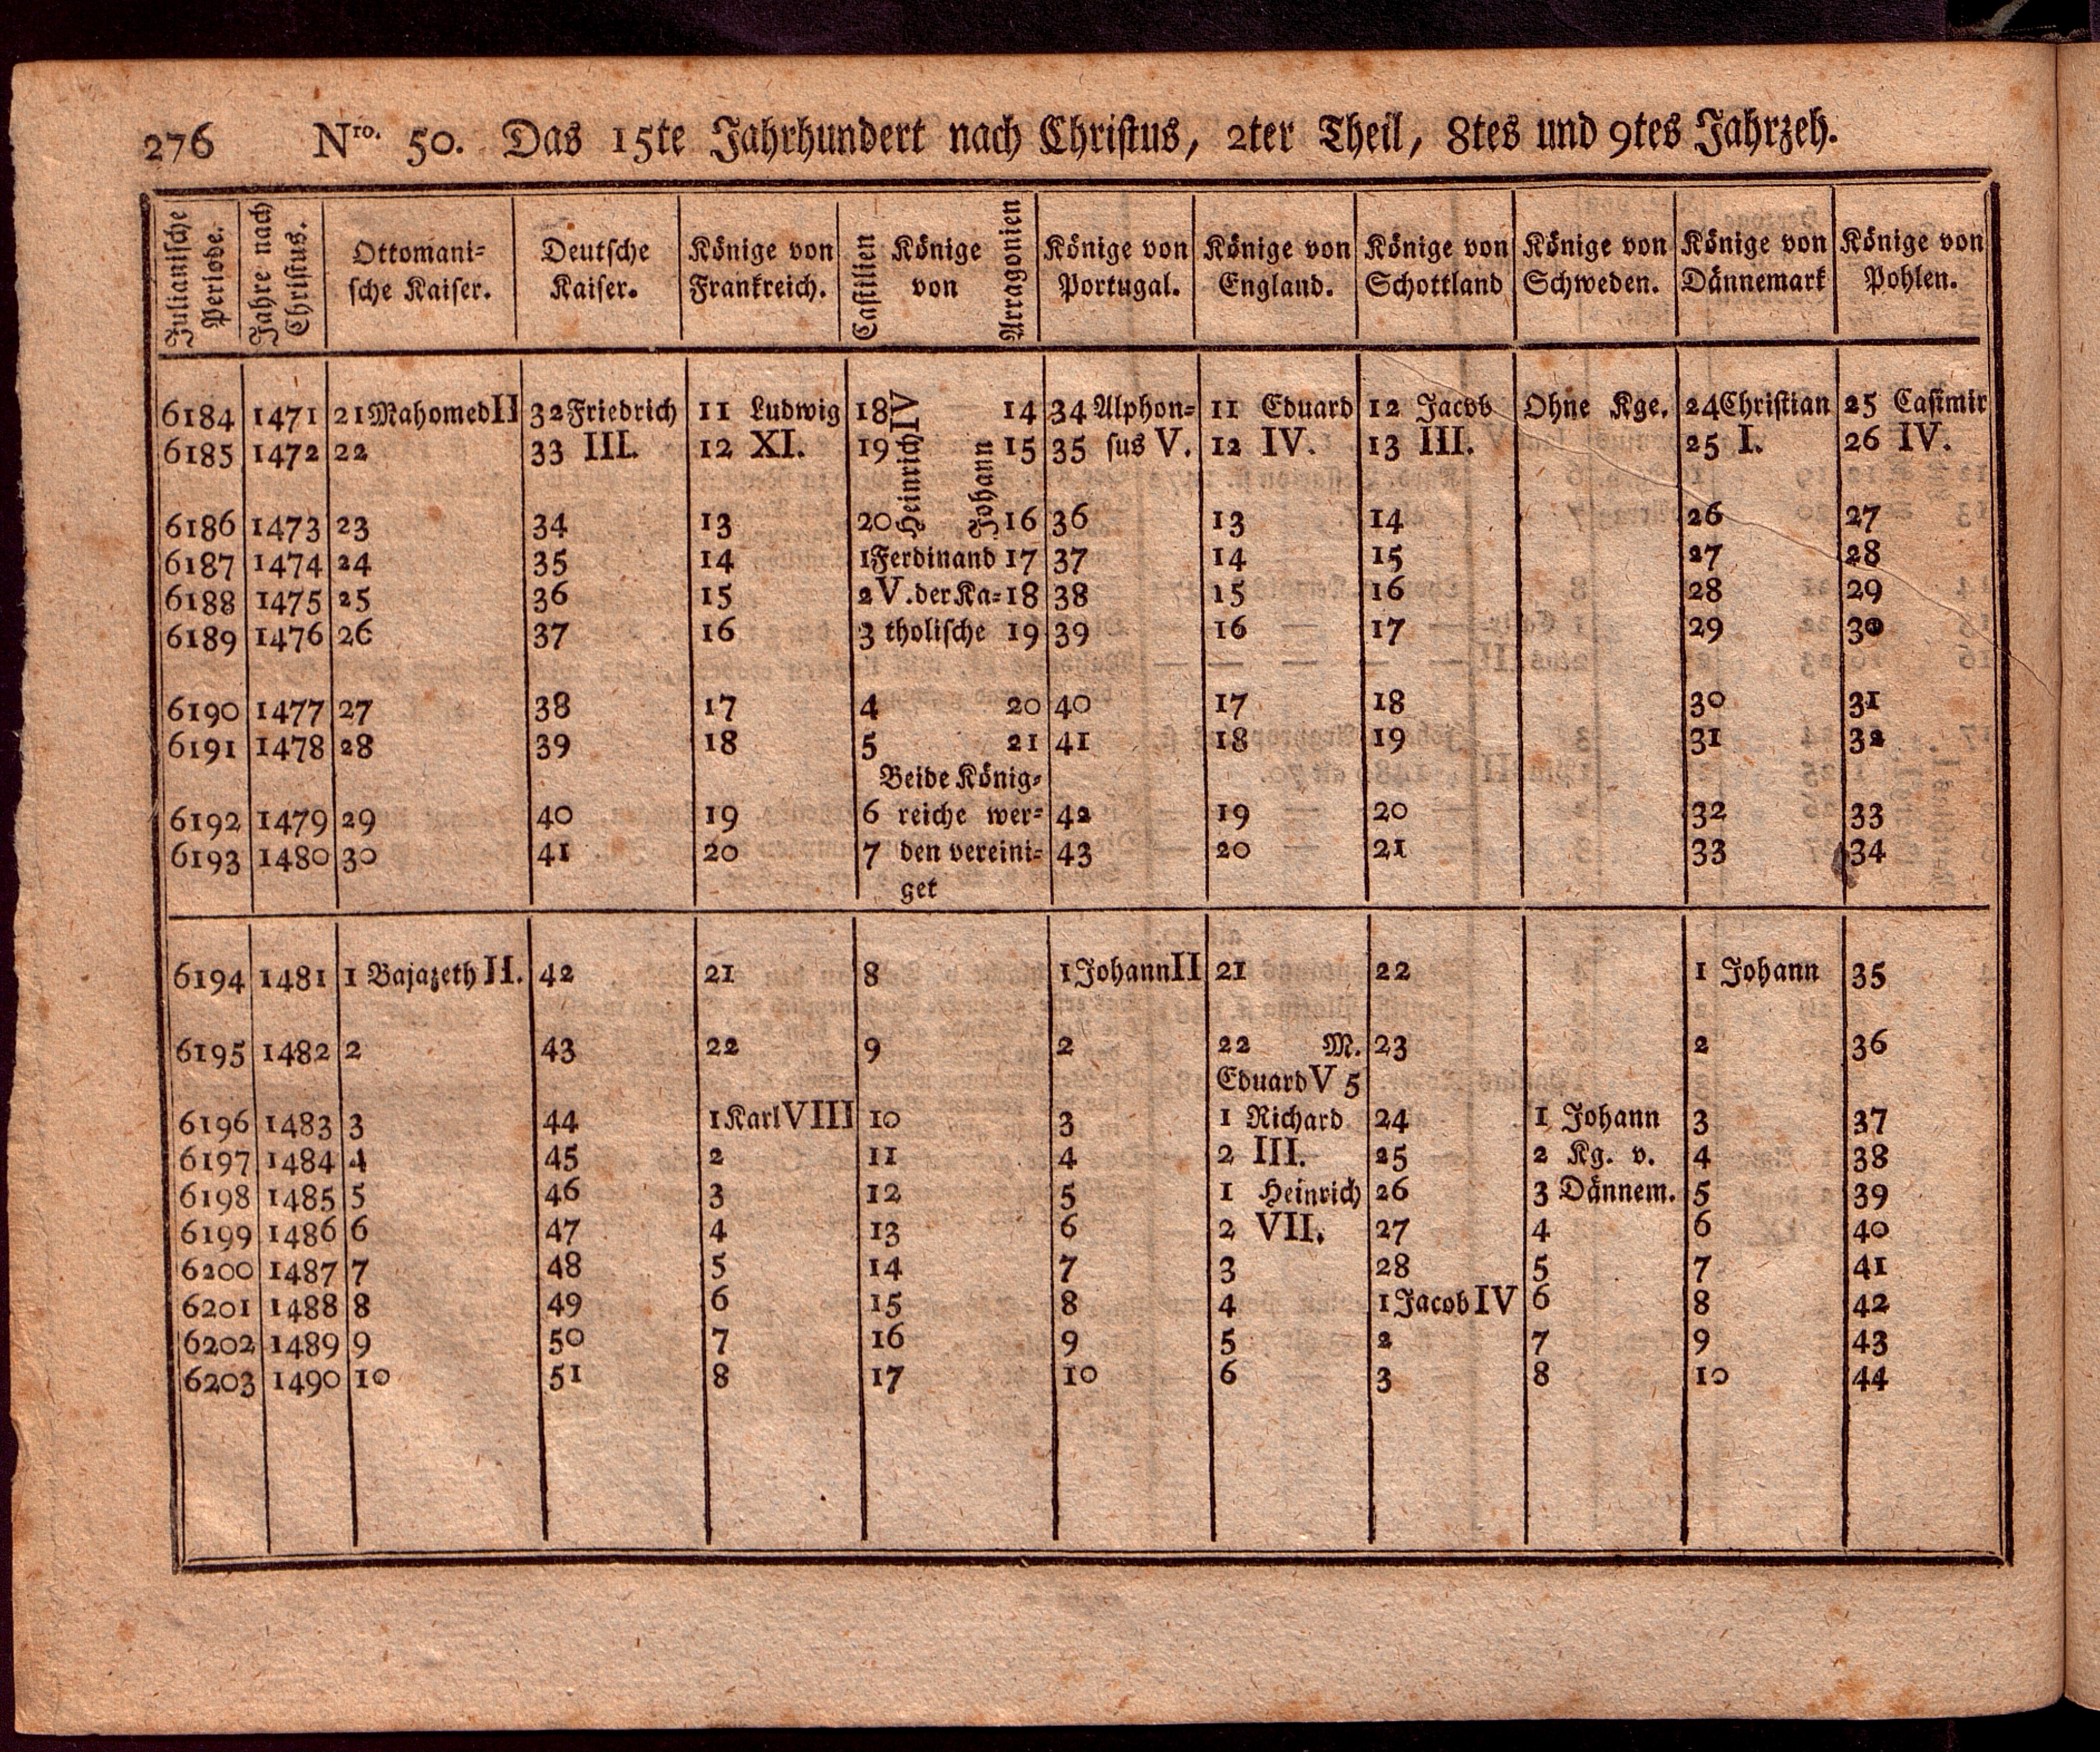 276 Nro. 50. Das 15te Jahrhundert nach Christus, 2ter Theil, 8tes und 9tes Jahrzeh.
Julianische Periode. Jahre nach Christus. Ottomani= sche Kaiser. Deutsche Kaiser. Könige von Frankreich. Castilien Könige von Arragonien Könige von Portugal. Könige von England. Könige von Schottland Könige von Schweden. Könige von Dännemark Könige von Pohlen.
6184 1471 21 Mahomed II 32 Friedrich 11 Ludwig 18 Heinrich IV Johann 14 34 Alphon= 11 Eduard 12 Jacob Ohne Kge. 24 Christian 25 Casimir
6185 1472 22 33 III. 12 XI. 19 15 35 sus V. 12 IV. 13 III. 25 I. 26 IV.
6186 1473 23 34 13 20 16 36 13 14 26 27
6187 1474 24 35 14 1 Ferdinand 17 37 14 15 27 28
6188 1475 25 36 15 2 V. der Ka= 18 38 15 16 28 29
6189 1476 26 37 16 3 tholische 19 39 16 17 29 30
6190 1477 27 38 17 4 20 40 17 18 30 31
6191 1478 28 39 18 5 21 41 18 19 31 32
Beide König=
6192 1479 29 40 19 6 reiche wer= 42 19 20 32 33
6193 1480 30 41 20 7 den vereini= 43 20 21 33 34
get
6194 1481 1 Bajazeth II. 42 21 8 1 Johann II 21 22 1 Johann 35
6195 1482 2 43 22 9 2 22 M. 23 2 36
Eduard V 5
6196 1483 3 44 1 Karl VIII 10 3 1 Richard 24 1 Johann 3 37
6197 1484 4 45 2 11 4 2 III. 25 2 Kg. v. 4 38
6198 1485 5 46 3 12 5 1 Heinrich 26 3 Dännem. 5 39
6199 1486 6 47 4 13 6 2 VII. 27 4 6 40
6200 1487 7 48 5 14 7 3 28 5 7 41
6201 1488 8 49 6 15 8 4 1 Jacob IV 6 8 42
6202 1489 9 50 7 16 9 5 2 7 9 43
6203 1490 10 51 8 17 10 6 3 8 10 44